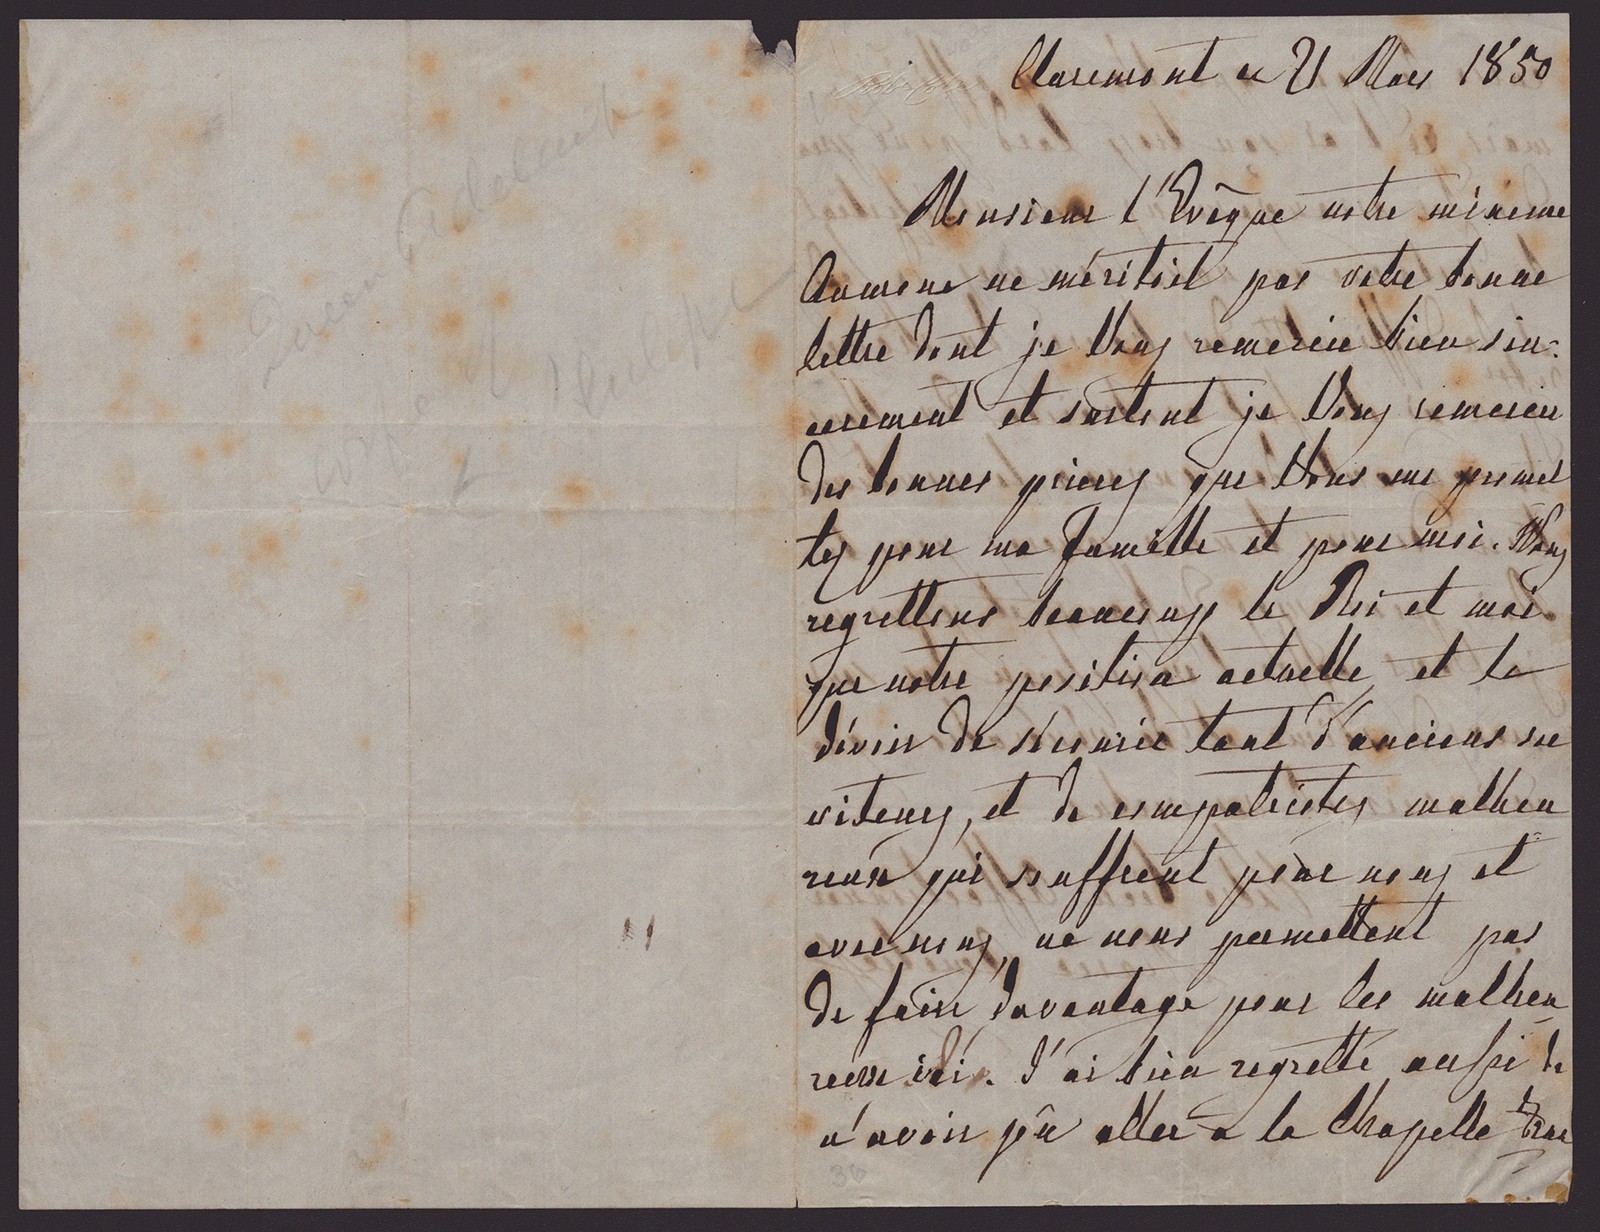 Queen Adelaide
wife of
Claremont ce 21 Mars 1850
Monsieur l'Evêque notre minime
Aumone ne méritoit pas votre bonne
lettre dont je Vous remercie bien sin-
cerement et surtout je Vous remercie
des bonnes prieres que Vous me promet
tez pour ma famille et pour moi. Nous
regrettons beaucoup le Roi et moi
que notre position actuelle et le
dévoir de sécourir tant d'anciens ser
viteurs, et de compatriotes malheu
reux qui souffrent pour nous et
avec nous, ne nous permettent pas
de faire davantage pour les malheu
reux ici. J'ai bien regretté aussi de
n'avoir pû aller a la Chapelle Fran
36